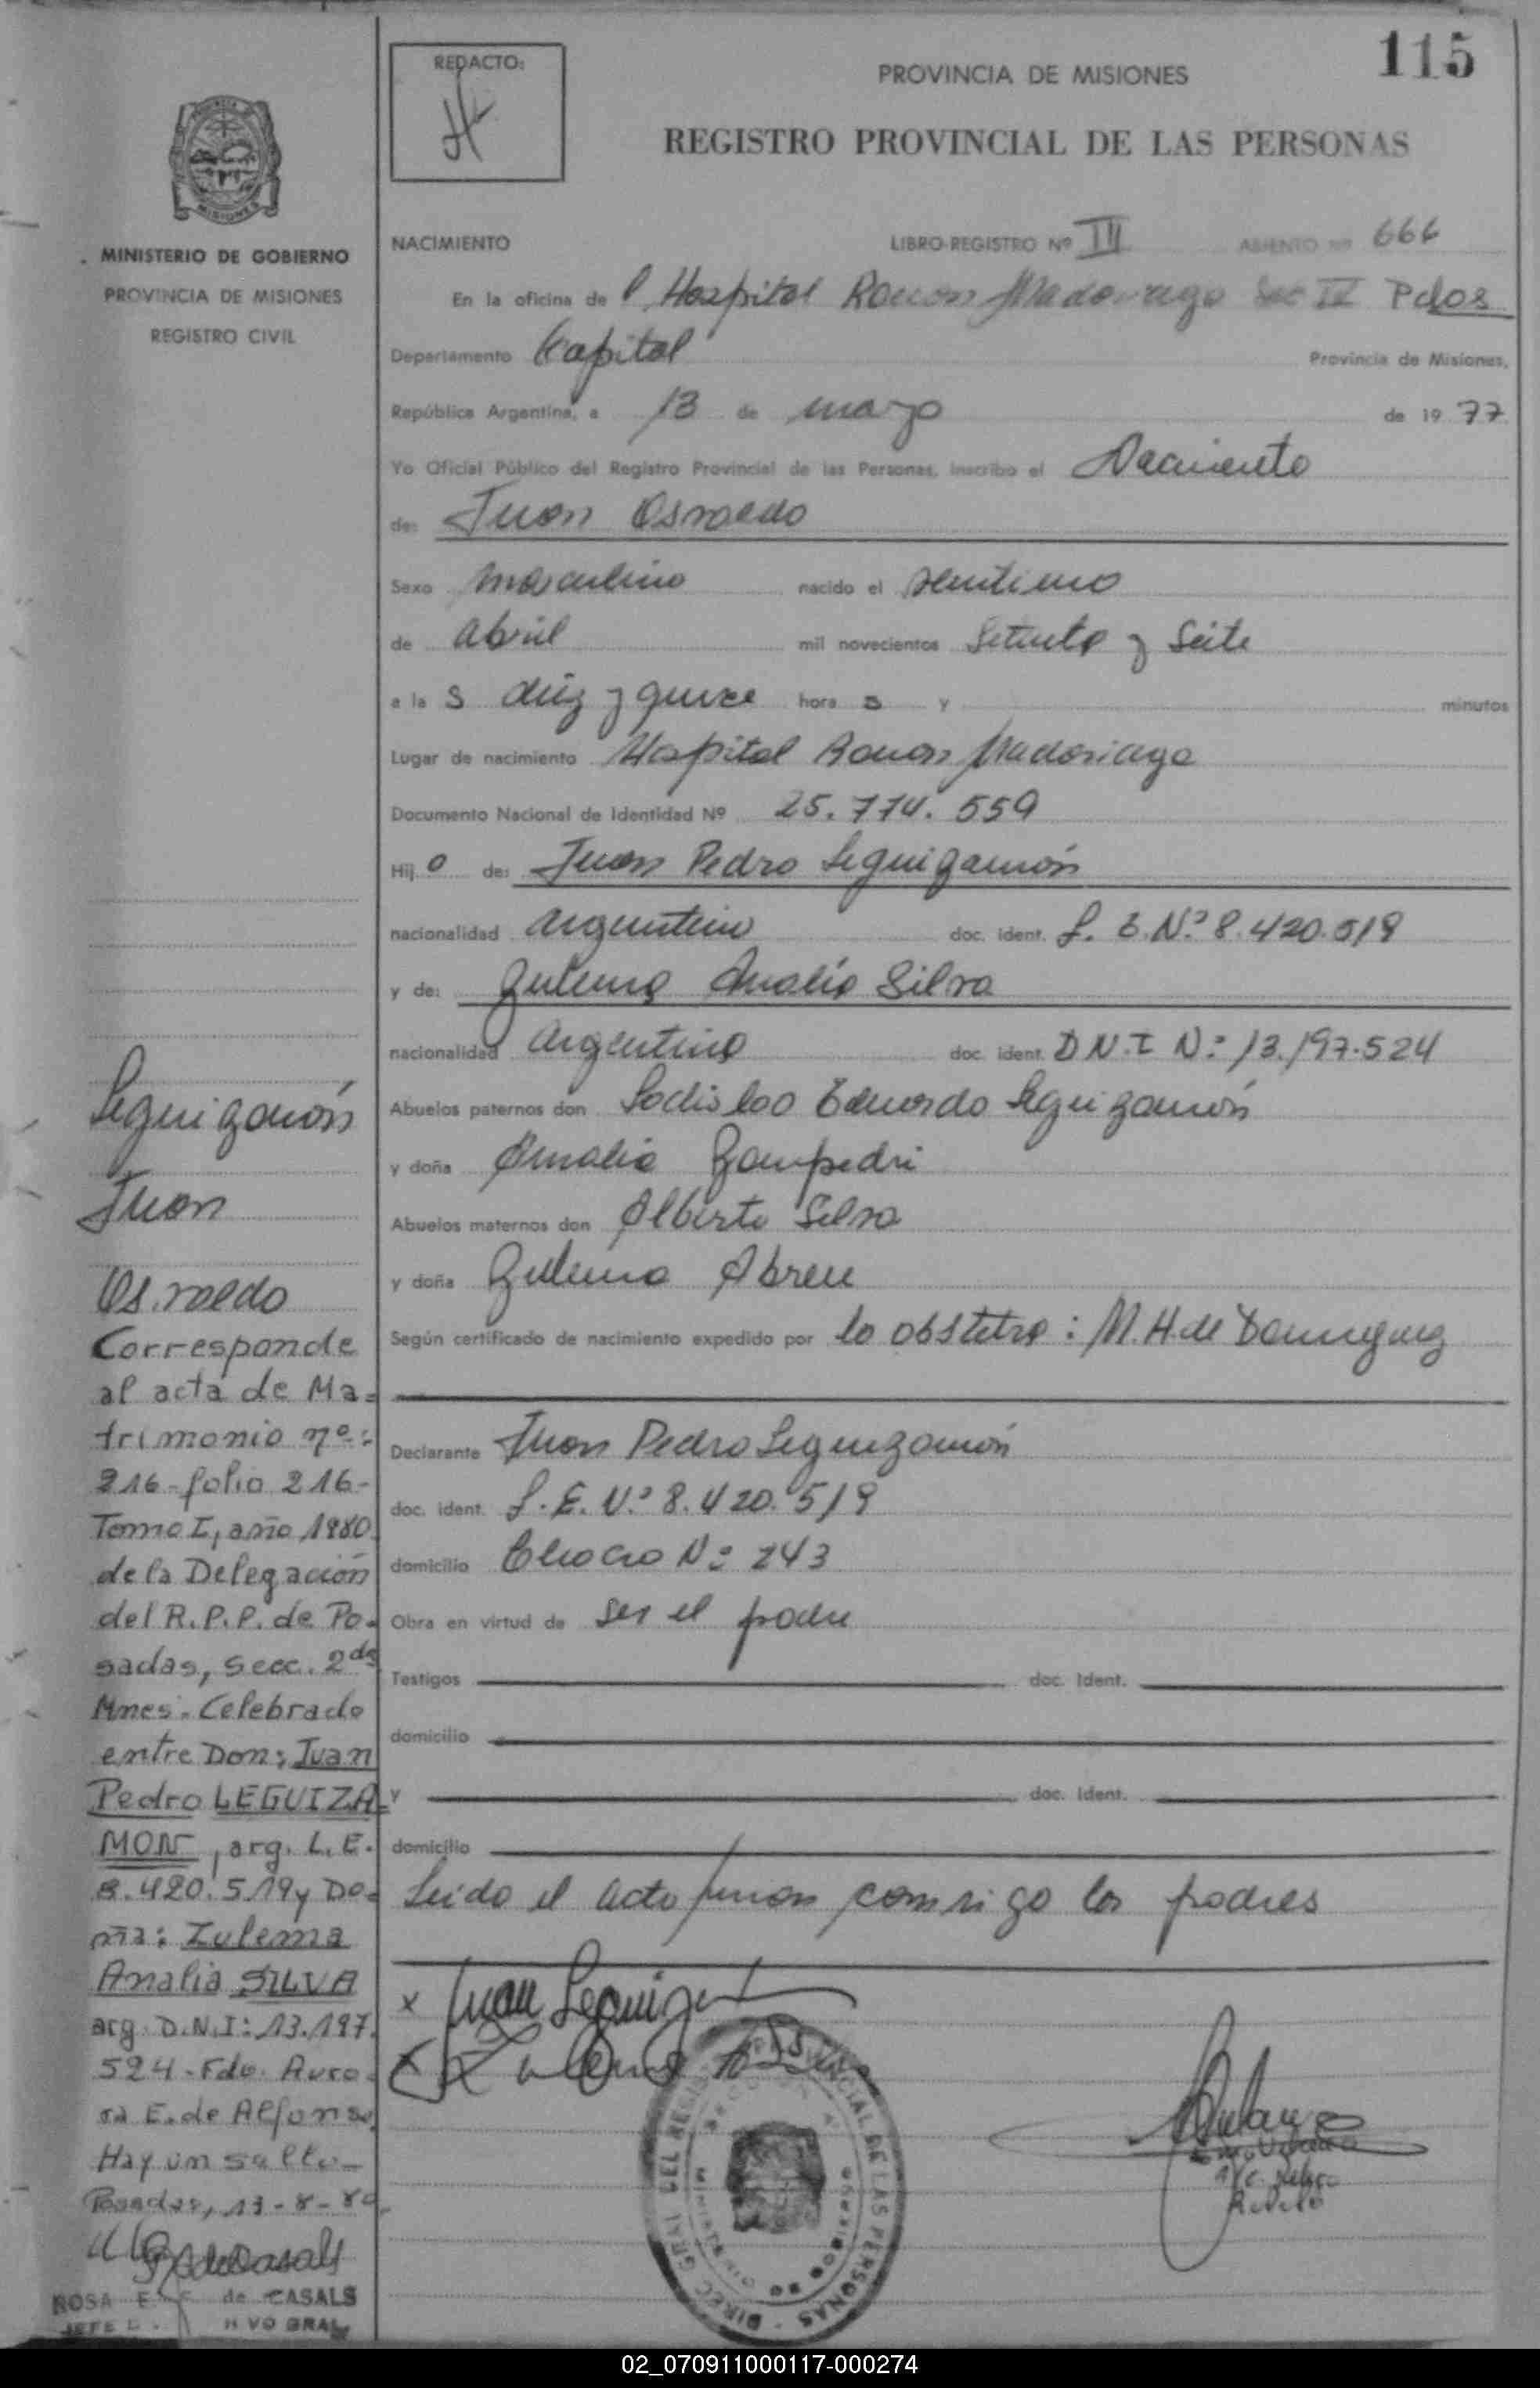 115
REDACTO:
PROVINCIA DE MISIONES
REGISTRO PROVINCIAL DE LAS PERSONAS
MISIONES
MINISTERIO DE GOBIERNO
PROVINCIA DE MISIONES
REGISTRO CIVIL
NACIMIENTO LIBRO-REGISTRO Nº III ASIENTO Nº 666
En la oficina de Hospital Ramon Madariaga Sec IV Pdas
Departamento Capital Provincia de Misiones,
República Argentina, a 13 de marzo de 1977
Yo Oficial Público del Registro Provincial de las Personas, inscribo el Nacimiento
de: Juan Osvaldo
Sexo masculino nacido el
de abril mil novecientos Setenta y Seite
a la s diez y quince hora s y minutos
Lugar de nacimiento Hospital Ramon Madariaga
Documento Nacional de Identidad Nº 25.774.559
Hij o de: Juan Pedro Leguizamón
nacionalidad argentino doc. ident. L. E. Nº 8.420.519
y de: Zulema Analia Silva
nacionalidad argentina doc. ident. D N.I Nº 13.197.524
Abuelos paternos don Ladislao Eduardo Leguizamón
y doña Amalia Zampedri
Abuelos maternos don Alberto Silva
y doña Zulema Abreu
Según certificado de nacimiento expedido por la obstetra: M.H. de Dominguez
Declarante Juan Pedro Leguizamón
doc. ident. L.E. Nº 8.420.519
domicilio Chaco Nº 243
Obra en virtud de ser el padre
Testigos doc. Ident.
domicilio
y doc. Ident.
domicilio
Leido el acta firman conmigo los padres
x Juan Leguizamón
x Zulema
DIREC. GRAL. DEL REGISTRO PROVINCIAL DE LAS PERSONAS
Leguizamón
Juan
Osvaldo
Corresponde
al acta de Ma-
trimonio nº:
216-folio 216-
Tomo I, año 1980
de la Delegación
del R.P.P. de Po-
sadas, secc. 2da
Mnes. Celebrado
entre Don: Juan
Pedro LEGUIZA-
MON, arg. L.E.
8.420.519 y Do-
ña: Zulema
Analia SILVA
arg. D.N.I: 13.197.
524-Fdo. Auro-
ra E. de Alfonso
Hay un sello-
Posadas, 13-8-80.
ROSA E. de CASALS
JEFE
02_070911000117-000274